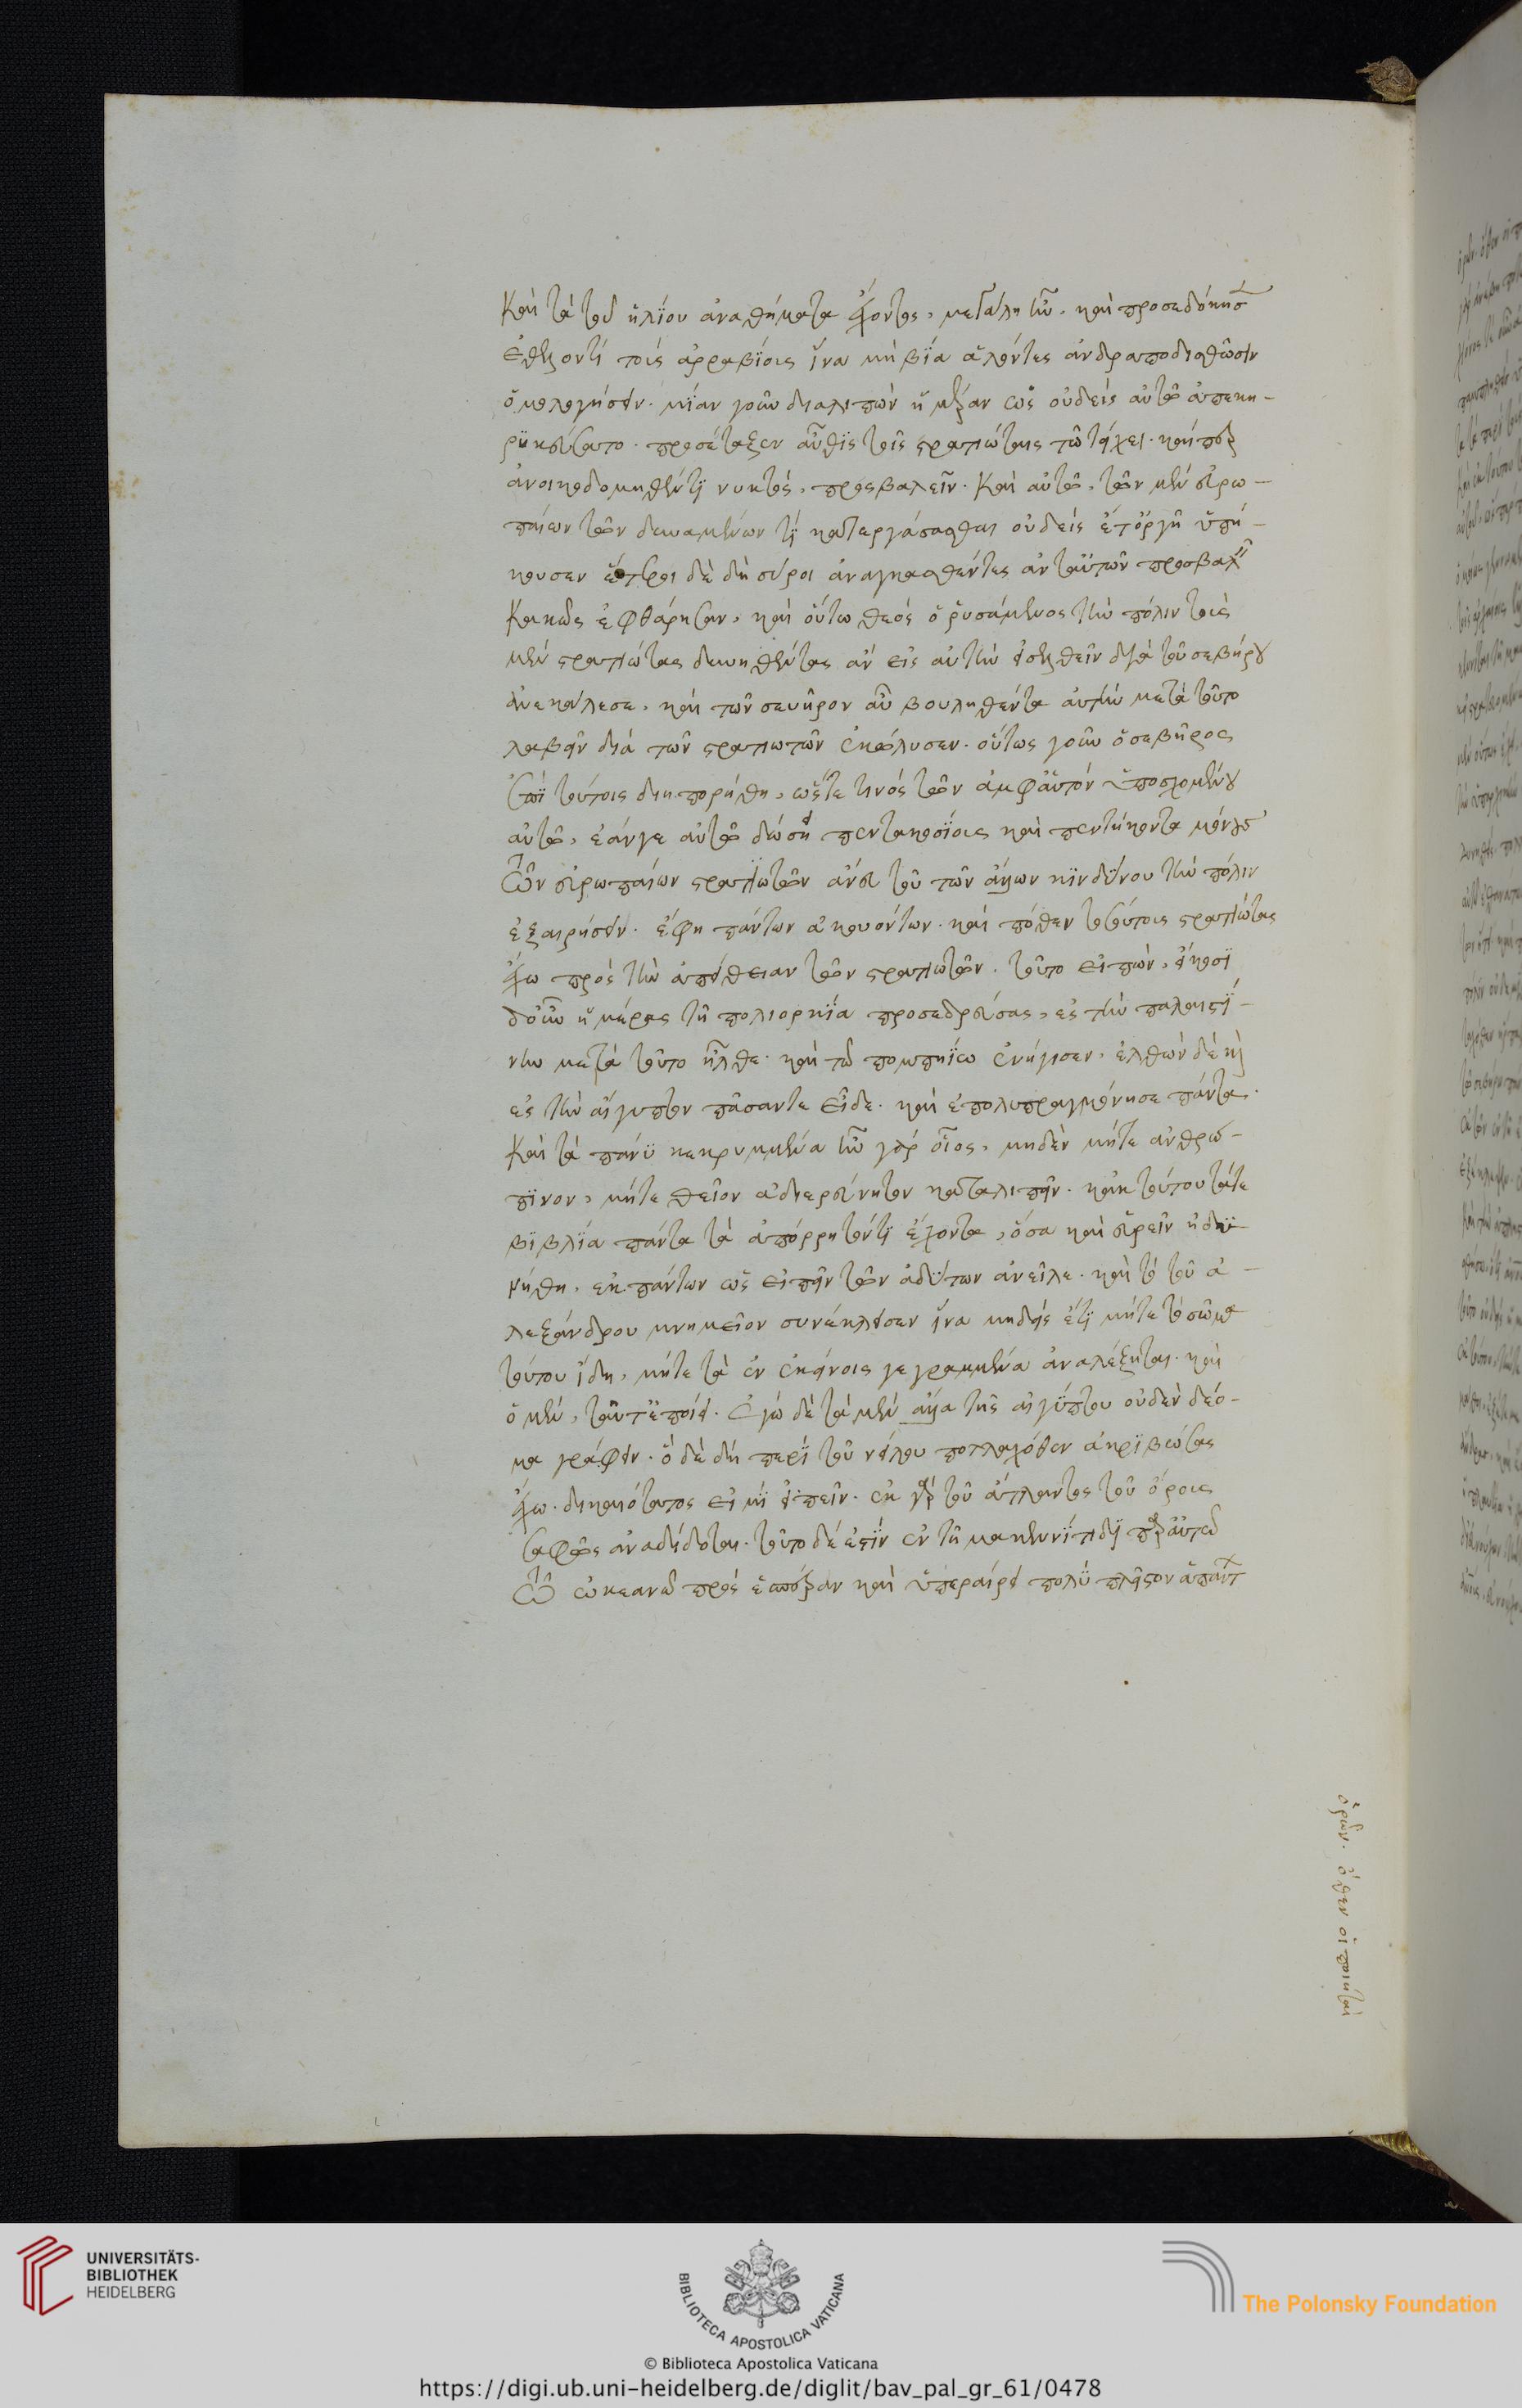 Καὶ τὰ τοῦ ἡλίου ἀναθήματα ἔχοντος, μεγάλη ἦν. καὶ προσεδόκησεν
ἐθελοντὶ τοὺς ἀρραβίους ἵνα μὴ βίᾳ ἁλόντες ἀνδραποδισθῶσιν
ὁμολογήσειν. μίαν γοῦν διαλιπὼν ἡμέραν ὡς οὐδεὶς αὐτῷ ἀπεκη-
ρυκεύσατο. προσέταξεν αὖθις τοῖς στρατιώταις τῷ τείχει. καίπερ
ἀνοικοδομηθέντι νυκτός, προσβαλεῖν. Καὶ αὐτῷ, τῶν μὲν εὐρω-
παίων τῶν δυναμένων τι κατεργάσασθαι οὐδεὶς ἔτ' ὀργῇ ὑπή-
κουσεν ἕτεροι δὲ δὴ σύροι ἀναγκασθέντες ἀντ' αὐτῶν προσβαλεῖν
κακῶς ἐφθάρησαν, καὶ οὕτω θεὸς ὁ ῥυσάμενος τὴν πόλιν τοὺς
μὲν στρατιώτας δυνηθέντας ἂν εἰς αὐτὴν ἐσελθεῖν διὰ τοῦ σεβήρου
ἀνεκάλεσε, καὶ τὸν σευῆρον αὖ βουληθέντα αὐτὴν μετὰ τοῦτο
λαβεῖν διὰ τῶν στρατιωτῶν ἐκώλυσεν. οὕτως γοῦν ὁ σεβῆρος
ἐπὶ τούτοις διηπορήθη, ὥστε τινὸς τῶν ἀμφ' αὐτὸν ὑποσχομένου
αὐτῷ, ἐάν γε αὐτῷ δώσῃ πεντακοσίους καὶ πεντήκοντα μόνους
τῶν εὐρωπαίων στρατιωτῶν ἄνευ τοῦ τῶν ἄλλων κινδύνου τὴν πόλιν
ἐξαιρήσειν. ἔφη πάντων ἀκουόντων. καὶ πόθεν τοσούτους στρατιώτας
ἔχω πρὸς τὴν ἀπείθειαν τῶν στρατιωτῶν. τοῦτο εἰπών, εἴκοσι
δ' οὖν ἡμέρας τῇ πολιορκίᾳ προσεδρεύσας, ἐς τὴν παλαιστί-
νην μετὰ τοῦτο ἦλθε. καὶ τῷ πομπηίῳ ἐνήγισεν. ἐλθὼν δὲ καὶ
ἐς τὴν αἴγυπτον πᾶσάν τε εἶδε. καὶ ἐπολυπραγμόνησε πάντα.
Καὶ τὰ πάνυ κεκρυμμένα ἦν γὰρ οἷος, μηδὲν μήτε ἀνθρώ-
πινον, μήτε θεῖον ἀδιερεύνητον καταλιπεῖν. κἀκ τούτου τά τε
βιβλία πάντα τὰ ἀπόρρητόν τι ἔχοντα, ὅσα καὶ εὑρεῖν ἠδυ-
νήθη, ἐκ πάντων ὡς εἰπεῖν τῶν ἀδύτων ἀνεῖλε. καὶ τὸ τοῦ ἀ-
λεξάνδρου μνημεῖον συνέκλεισεν ἵνα μηδεὶς ἔτι μήτε τὸ σῶμα
τούτου ἴδῃ, μήτε τὰ ἐν ἐκείνοις γεγραμμένα ἀναλέξηται. καὶ
ὁ μὲν, ταῦτ' ἐποίει. Ἐγὼ δὲ τὰ μὲν ἄλλα τῆς αἰγύπτου οὐδὲν δέο-
μαι γράφειν. ὃ δὲ δὴ περὶ τοῦ νείλου πολλαχόθεν ἀκριβώσας
ἔχω. δικαιότατος εἰμὶ εἰπεῖν. ἐκ γὰρ τοῦ ἄτλαντος τοῦ ὄρους
σαφῶς ἀναδίδοται. τοῦτο δέ ἐστιν ἐν τῇ μακεννίτιδι παρ' αὐτῷ
τῷ ὠκεανῷ πρὸς ἑσπέραν καὶ ὑπεραίρει πολὺ πλεῖστον ἁπάντων
ὀρῶν. ὅθεν οἱ ποιηταὶ
UNIVERSITÄTS-
BIBLIOTHEK
HEIDELBERG
BIBLIOTECA APOSTOLICA VATICANA
The Polonsky Foundation
© Biblioteca Apostolica Vaticana
https://digi.ub.uni-heidelberg.de/diglit/bav_pal_gr_61/0478